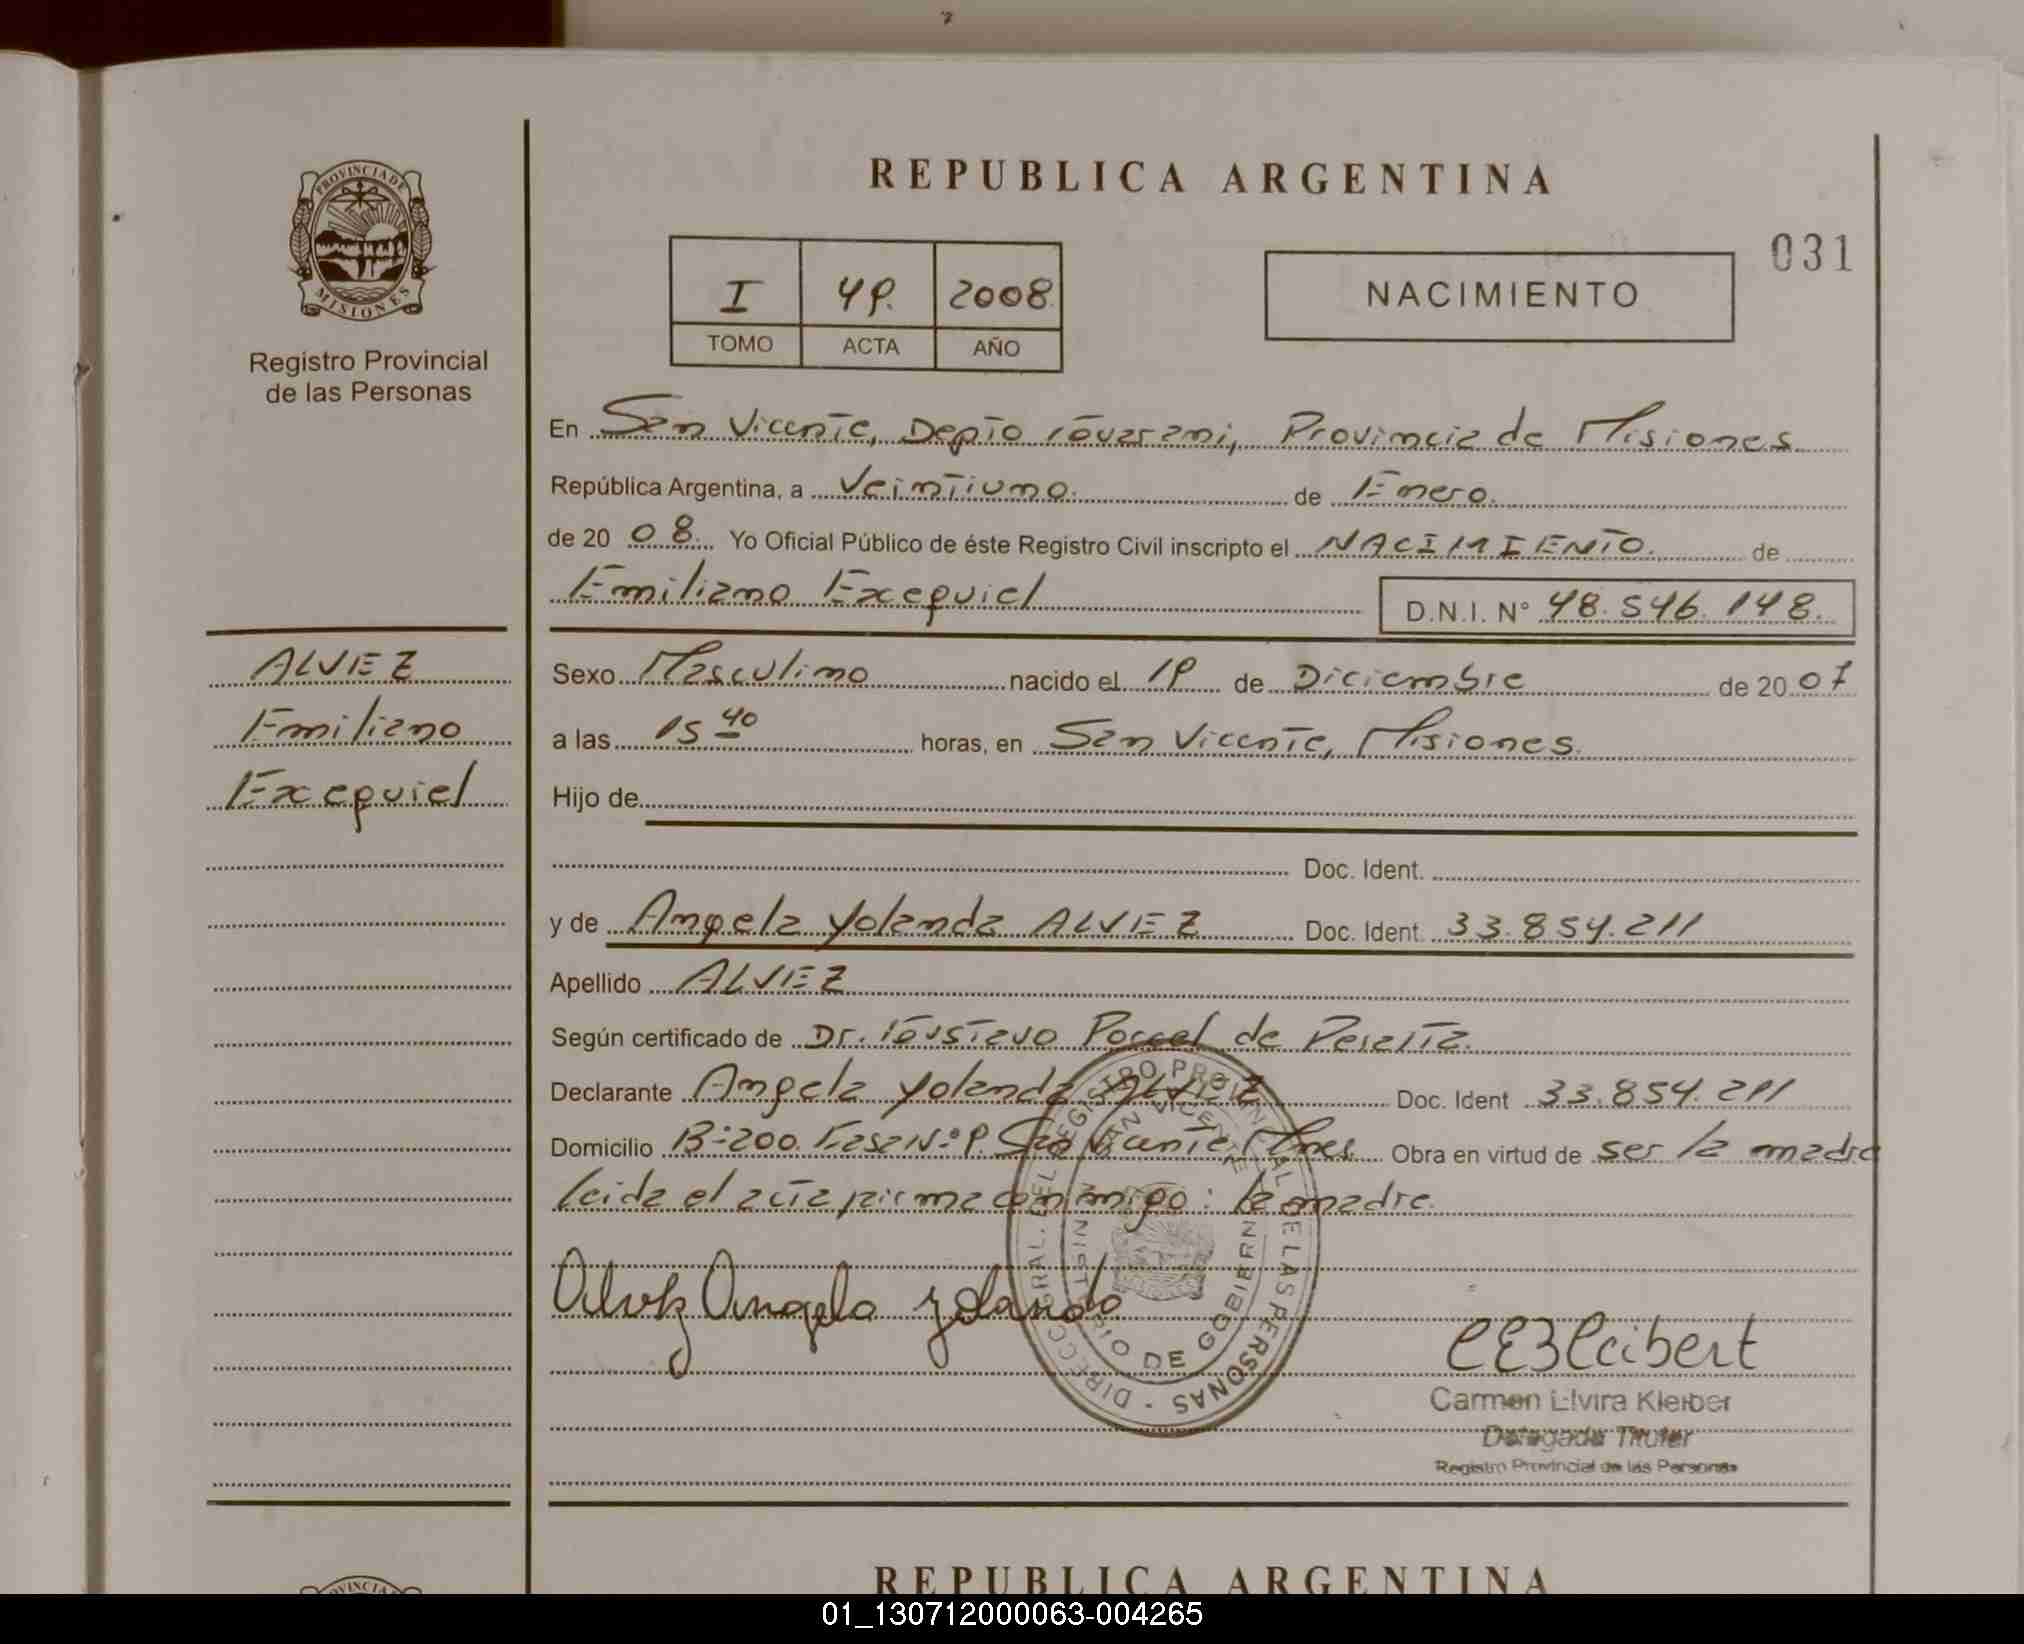 REPUBLICA ARGENTINA
031
I 49. 2008
TOMO ACTA AÑO
NACIMIENTO
PROVINCIA DE MISIONES
Registro Provincial
de las Personas
En San Vicente, Depto Guarani, Provincia de Misiones
República Argentina, a Veintiuno. de Enero.
de 20 08. Yo Oficial Público de éste Registro Civil inscripto el NACIMIENTO. de
Emiliano Exequiel D.N.I. N° 48.546.148.
ALVEZ
Emiliano
Exequiel
Sexo Masculino nacido el 19 de Diciembre de 20 07
a las 15 40 horas, en San Vicente, Misiones.
Hijo de
Doc. Ident.
y de Angela Yolanda ALVEZ Doc. Ident. 33.854.211
Apellido ALVEZ
Según certificado de Dr. Gustavo de Peralta.
Declarante Angela Yolanda ALVEZ Doc. Ident 33.854.211
Domicilio B:200 Casa N:9. San Vicente Mnes. Obra en virtud de ser la madre
leida el acta firma conmigo: la madre.
Alvez Angela Yolanda
DIRECC. GRAL. DEL REGISTRO PROVINCIAL DE LAS PERSONAS -
SAN VICENTE
MINISTERIO DE GOBIERNO
Carmen Elvira Kleiber
Delegada Titular
Registro Provincial de las Personas
PROVINCIA
REPUBLICA ARGENTINA
01_130712000063-004265